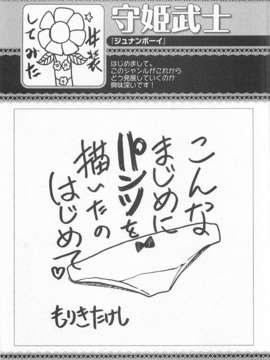 女装
してみた
守姫武士
『ジュナンボーイ』
はじめまして。
このジャンルがこれから
どう発展していくのか
興味深いです！
こんな
まじめに
パンツを
描いたの
はじめて♡
もりきたけし